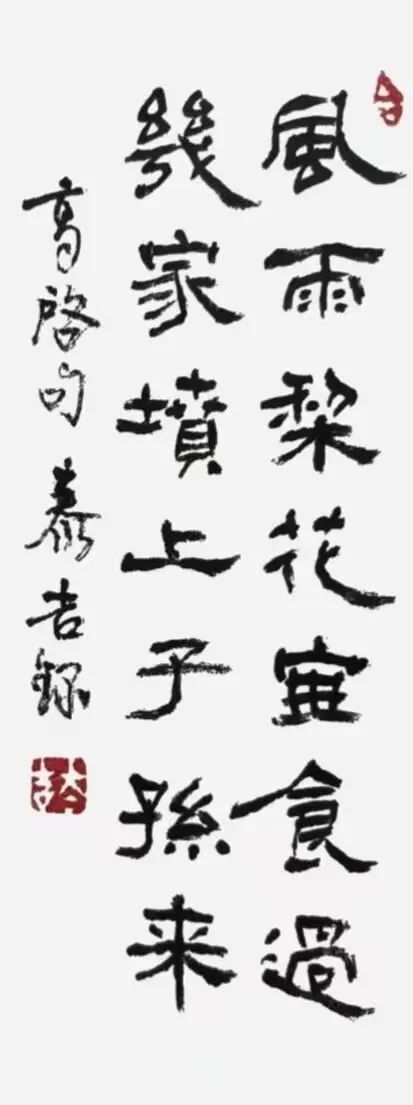 風雨梨花寒食過
幾家墳上子孫来
高啓句 泰吉錄